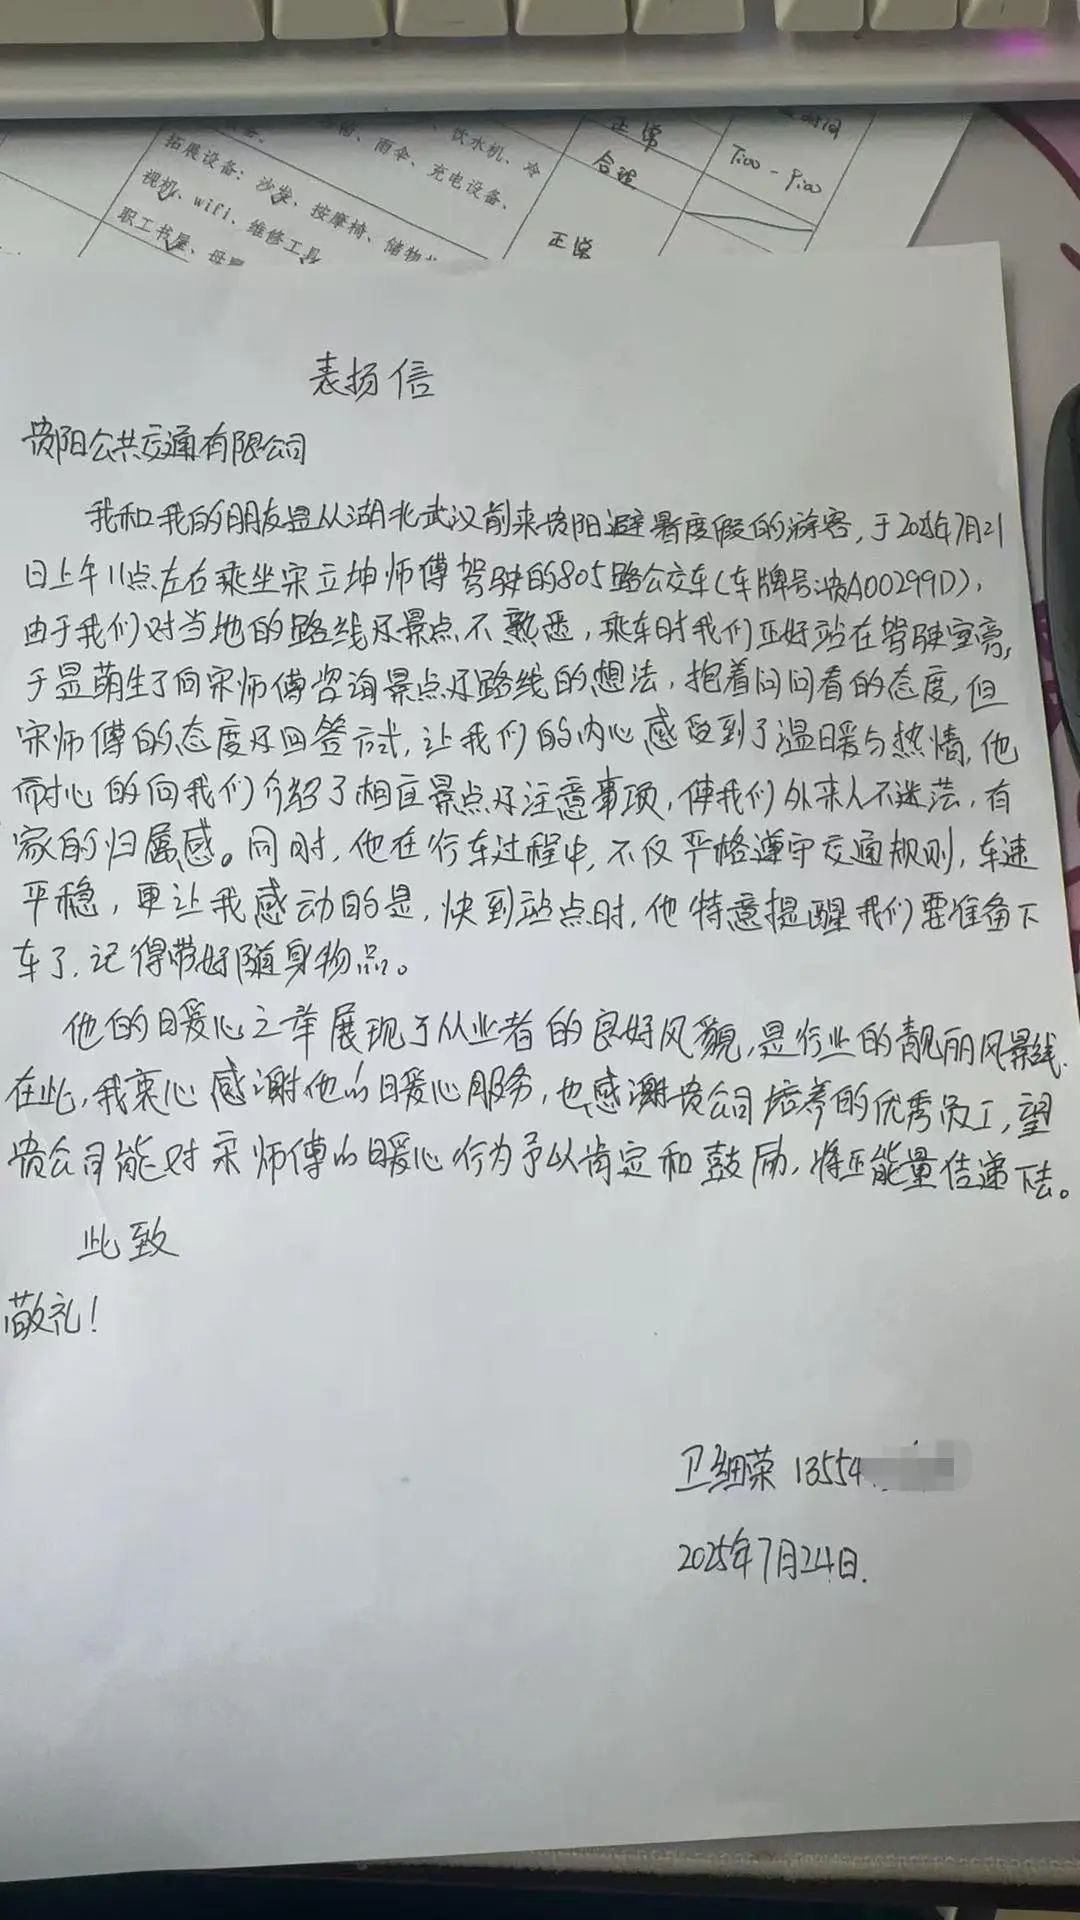 饮水机、冷
雨伞、充电设备、
拓展设备：沙发、按摩椅、储物
视机、wifi、维修工具
职工书屋、母
正常
合理
正常
时间
7:00-9:00
表扬信
贵阳公共交通有限公司
我和我的朋友是从湖北武汉前来贵阳避暑度假的游客，于2025年7月21
日上午11点左右乘坐宋立坤师傅驾驶的805路公交车（车牌号:贵A00299D），
由于我们对当地的路线及景点不熟悉，乘车时我们正好站在驾驶室旁，
于是萌生了向宋师傅咨询景点及路线的想法，抱着问问看的态度，但
宋师傅的态度及回答方式，让我们的内心感受到了温暖与热情，他
耐心的向我们介绍了相应景点及注意事项，使我们外来人不迷茫，有
家的归属感。同时，他在行车过程中，不仅严格遵守交通规则，车速
平稳，更让我感动的是，快到站点时，他特意提醒我们要准备下
车了，记得带好随身物品。
他的暖心之举展现了从业者的良好风貌，是行业的靓丽风景线.
在此，我衷心感谢他的暖心服务，也感谢贵公司培养的优秀员工，望
贵公司能对宋师傅的暖心行为予以肯定和鼓励，将正能量传递下去。
此致
敬礼！
卫细荣 13554
2025年7月24日.